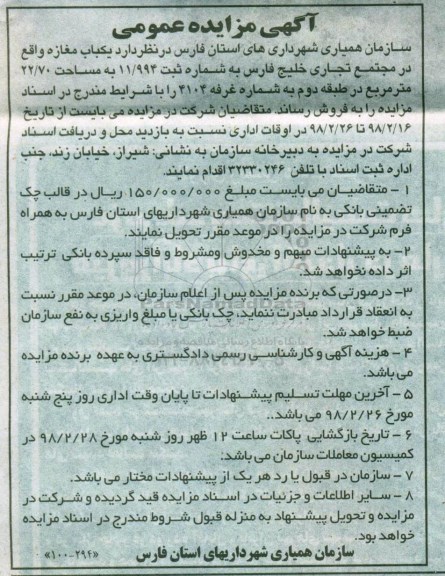 آگهی مزایده عمومی
سازمان همیاری شهرداری های استان فارس درنظردارد یکباب مغازه واقع
در مجتمع تجاری خلیج فارس به شماره ثبت ۱۱/۹۹۴ به مساحت ۲۲/۷۰
مترمربع در طبقه دوم به شماره غرفه ۴۱۰۴ را با شرایط مندرج در اسناد
مزایده را به فروش رساند. متقاضیان شرکت در مزایده می بایست از تاریخ
۹۸/۲/۱۶ تا ۹۸/۲/۲۶ در اوقات اداری نسبت به بازدید محل و دریافت اسناد
شرکت در مزایده به دبیرخانه سازمان به نشانی: شیراز، خیابان زند، جنب
اداره ثبت اسناد با تلفن ۳۲۳۳۰۲۴۶ اقدام نمایند.
۱ - متقاضیان می بایست مبلغ ۱۵۰/۰۰۰/۰۰۰ ریال در قالب چک
تضمینی بانکی به نام سازمان همیاری شهرداریهای استان فارس به همراه
فرم شرکت در مزایده را در موعد مقرر تحویل نمایند.
۲- به پیشنهادات مبهم و مخدوش ومشروط و فاقد سپرده بانکی ترتیب
اثر داده نخواهد شد.
۳- درصورتی که برنده مزایده پس از اعلام سازمان، در موعد مقرر نسبت
به انعقاد قرارداد مبادرت ننماید، چک بانکی یا مبلغ واریزی به نفع سازمان
ضبط خواهد شد.
۴ - هزینه آگهی و کارشناسی رسمی دادگستری به عهده برنده مزایده
می باشد.
۵ - آخرین مهلت تسلیم پیشنهادات تا پایان وقت اداری روز پنج شنبه
مورخ ۹۸/۲/۲۶ می باشد..
۶ - تاریخ بازگشایی پاکات ساعت ۱۲ ظهر روز شنبه مورخ ۹۸/۲/۲۸ در
کمیسیون معاملات سازمان می باشد:
۷ - سازمان در قبول یا رد هر یک از پیشنهادات مختار می باشد.
۸ - سایر اطلاعات و جزئیات در اسناد مزایده قید گردیده و شرکت در
مزایده و تحویل پیشنهاد به منزله قبول شروط مندرج در اسناد مزایده
خواهد بود.
سازمان همیاری شهرداریهای استان فارس
«۱۰۰-۲۹۴»